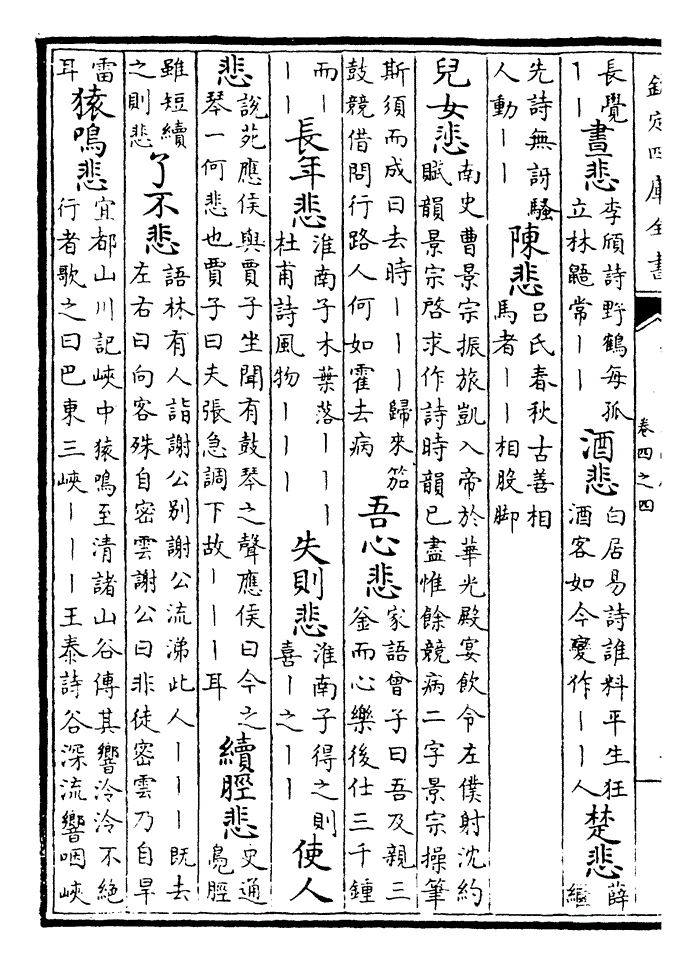 欽定四庫全書
卷四之四
長覺｜｜ 晝悲 李頎詩野鶴每孤立林鼯常｜｜ 酒悲 白居易詩誰料平生狂酒客如今變作｜｜人 楚悲 薛繼
先詩無訝騷人動｜｜ 陳悲 吕氏春秋古善相馬者｜｜相股脚
兒女悲 南史曹景宗振旅凱入帝於華光殿宴飲令左僕射沈約賦韻景宗啓求作詩時韻已盡惟餘競病二字景宗操筆
斯須而成曰去時｜｜｜歸來笳鼓競借問行路人何如霍去病 吾心悲 家語曾子曰吾及親三釜而心樂後仕三千鍾
而｜｜｜ 長年悲 淮南子木葉落｜｜｜杜甫詩風物｜｜｜ 失則悲 淮南子得之則喜｜之｜｜ 使人
悲 說苑應侯與賈子坐聞有鼓琴之聲應侯曰今之琴一何悲也賈子曰夫張急調下故｜｜｜耳 續脛悲 史通鳬脛
雖短續之則悲 了不悲 語林有人詣謝公別謝公流涕此人｜｜｜既去左右曰向客殊自密雲謝公曰非徒密雲乃自旱
雷耳 猿鳴悲 宜都山川記峽中猿鳴至清諸山谷傳其響泠泠不絶行者歌之曰巴東三峽｜｜｜王泰詩谷深流響咽峽